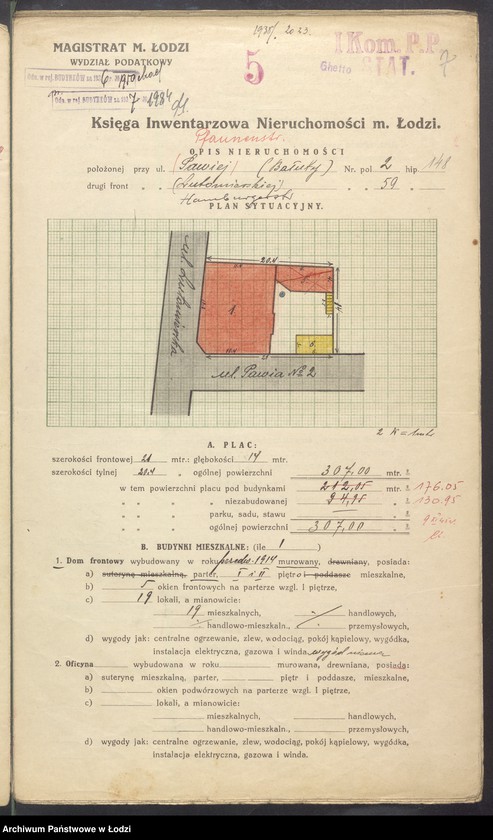 MAGISTRAT M. ŁODZI
WYDZIAŁ PODATKOWY
5
I Kom. P.P.
Ghetto STAT. 7
Księga Inwentarzowa Nieruchomości m. Łodzi.
OPIS NIERUCHOMOŚCI
położonej przy ul. (Pawiej) (Bałuty) Nr. pol 2 hip 148
drugi front „ „ (Lutomierskiej) „ „ 59 „
Hamburgerstr
PLAN SYTUACYJNY.
20.4
1
14
ul. Lutomierska
ul. Pawia № 2
21
A. PLAC:
szerokości frontowej 21 mtr.: głębokości 14 mtr.
szerokości tylnej 20.4 „ ogólnej powierzchni 307,00 mtr. ²
w tem powierzchni placu pod budynkami 212,05 mtr. ² 176.05
„ „ „ niezabudowanej 94,95 „ ² 130.95
„ „ „ parku, sadu, stawu — „ ²
ogólnej powierzchni 307,00 „ ²
B. BUDYNKI MIESZKALNE: (ile 1 )
1. Dom frontowy wybudowany w roku przed 1914 murowany, drewniany, posiada:
a) suterynę mieszkalną, parter, I i II piętro i poddasze mieszkalne,
b) 5 okien frontowych na parterze wzgl. I piętrze,
c) 19 lokali, a mianowicie:
19 mieszkalnych, handlowych,
handlowo-mieszkaln., przemysłowych,
d) wygody jak: centralne ogrzewanie, zlew, wodociąg, pokój kąpielowy, wygódka,
instalacja elektryczna, gazowa i winda.
2. Oficyna wybudowana w roku murowana, drewniana, posiada:
a) suterynę mieszkalną, parter, piętr i poddasze, mieszkalne,
b) okien podwórzowych na parterze wzgl. I piętrze,
c) lokali, a mianowicie:
mieszkalnych, handlowych,
handlowo-mieszkaln., przemysłowych,
d) wygody jak: centralne ogrzewanie, zlew, wodociąg, pokój kąpielowy, wygódka,
instalacja elektryczna, gazowa i winda.
Archiwum Państwowe w Łodzi